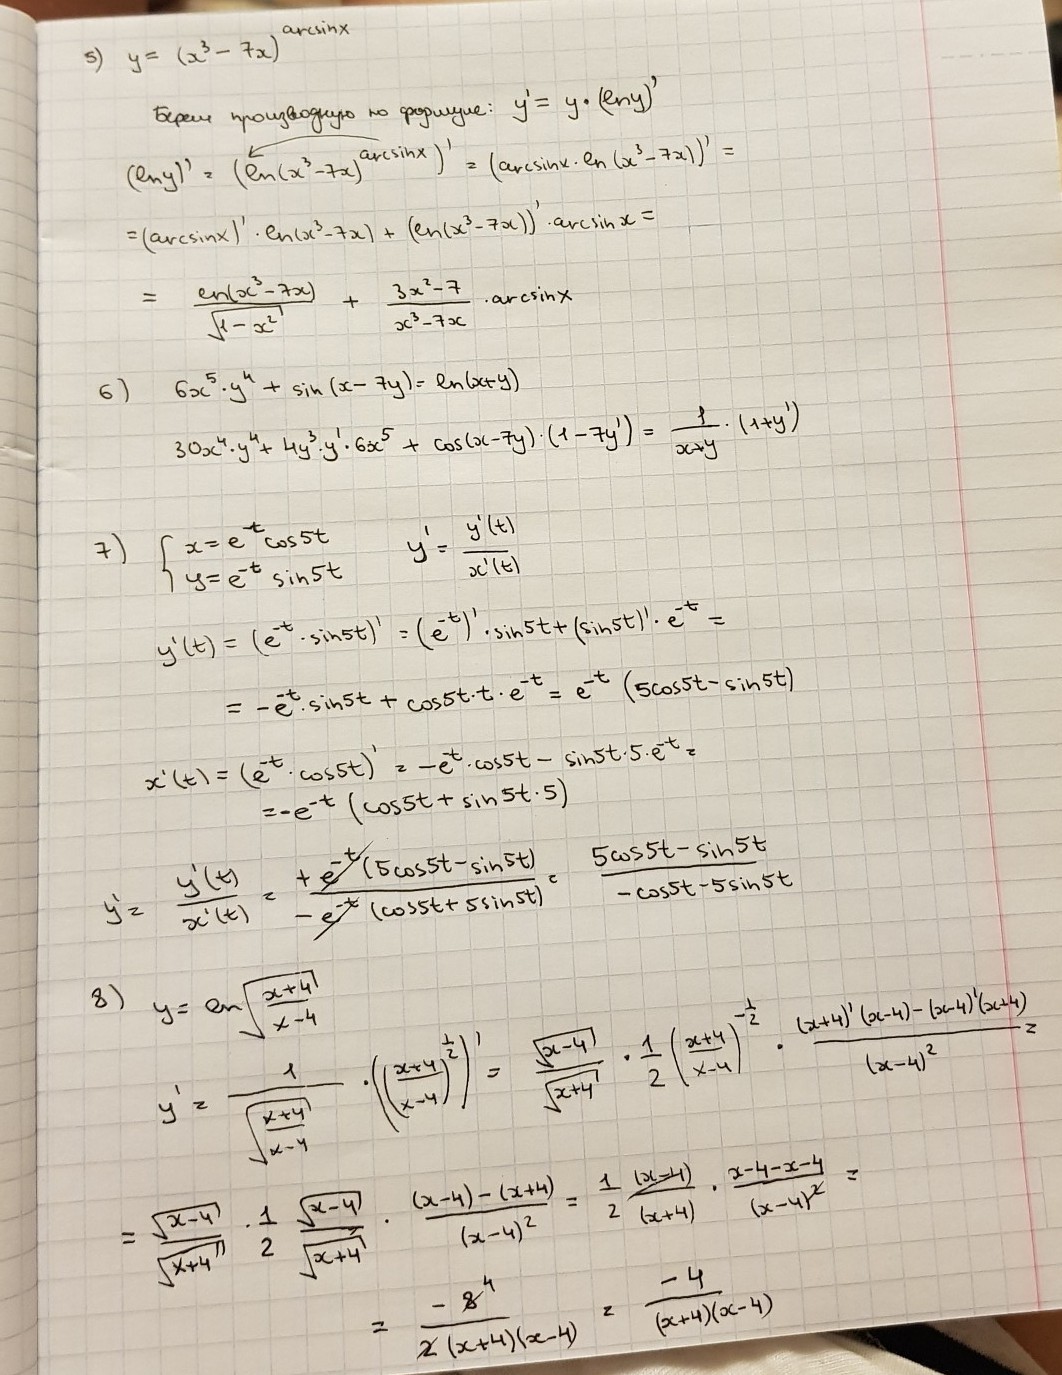 5) y = (x³ - 7x)^arcsinx
Берем производную по формуле: y' = y · (lny)'
(lny)' = (ln(x³-7x)^arcsinx)' = (arcsinx · ln(x³-7x))' =
= (arcsinx)' · ln(x³-7x) + (ln(x³-7x))' · arcsinx =
= ln(x³-7x)/√(1-x²) + (3x²-7)/(x³-7x) · arcsinx
6) 6x⁵·y⁴ + sin(x-7y) = ln(x+y)
30x⁴·y⁴ + 4y³·y'·6x⁵ + cos(x-7y)·(1-7y') = 1/(x+y) · (1+y')
7) { x = e^-t cos5t y' = y'(t)/x'(t)
y = e^-t sin5t
y'(t) = (e^-t · sin5t)' = (e^-t)' · sin5t + (sin5t)' · e^-t =
= -e^-t · sin5t + cos5t · t · e^-t = e^-t (5cos5t - sin5t)
x'(t) = (e^-t · cos5t)' = -e^-t · cos5t - sin5t · 5 · e^-t =
= -e^-t (cos5t + sin5t · 5)
y' = y'(t)/x'(t) = +e^-t (5cos5t - sin5t)/-e^-t (cos5t + 5sin5t) = (5cos5t - sin5t)/(-cos5t - 5sin5t)
8) y = ln√((x+4)/(x-4))
y' = 1/√((x+4)/(x-4)) · (((x+4)/(x-4))^1/2)' = √(x-4)/√(x+4) · 1/2 ((x+4)/(x-4))^-1/2 · ((x+4)'(x-4) - (x-4)'(x+4))/(x-4)² =
= √(x-4)/√(x+4) · 1/2 √(x-4)/√(x+4) · ((x-4) - (x+4))/(x-4)² = 1/2 (x-4)/(x+4) · (x-4-x-4)/(x-4)² =
= -8 4/2(x+4)(x-4) = -4/(x+4)(x-4)